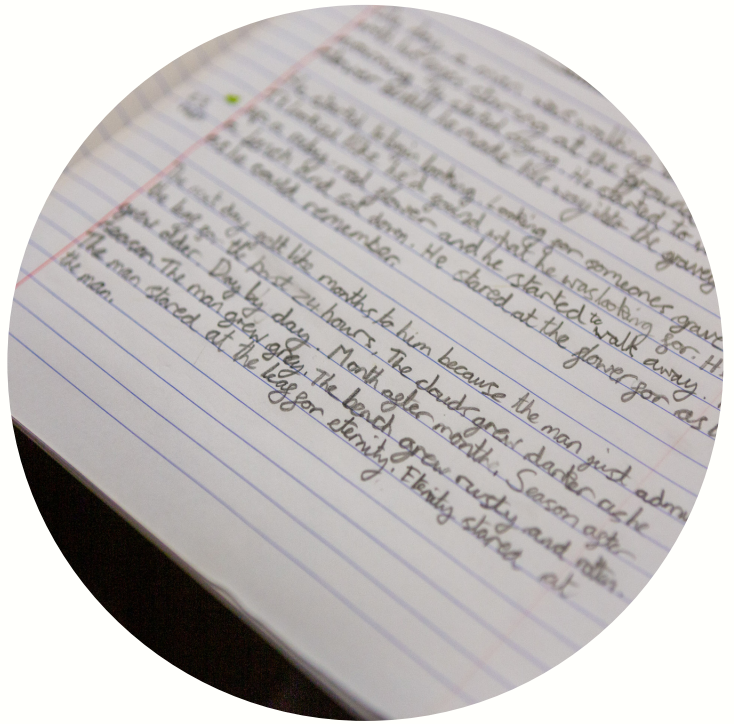 day a man was walking
at the ground
started crying. He started to
he made his way into the gravey
looking. Looking for someones grave
it looked like he'd found what he was looking for. H
up a ruby red flower and he started to walk away.
bench and sat down. He stared at the flower for as
he could remember.
The next day felt like months to him because the man just admi
the leaf for the past 24 hours. The clouds grew darker as he
grew older. Day by day. Month after month. Season after
season. The man grew grey. The bench grew rusty and rotten.
The man stared at the leaf for eternity. Eternity stared at
the man.